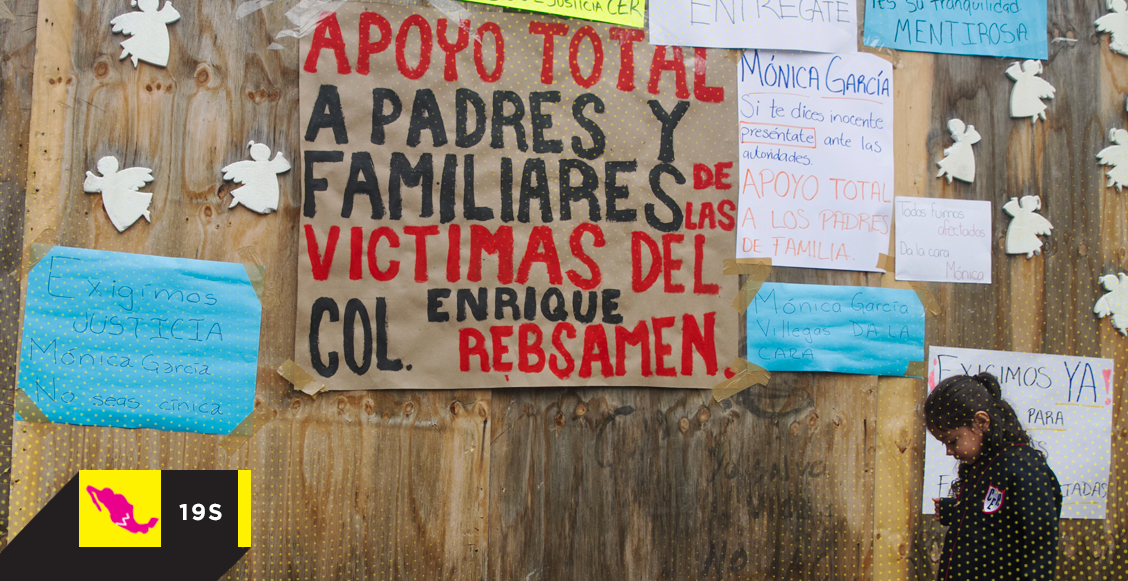 JUSTICIA CER
ENTREGATE
su tranquilidad
MENTIROSA
APOYO TOTAL
A PADRES Y
FAMILIARES DE
LAS
VICTIMAS DEL
COL. ENRIQUE
REBSAMEN.
MÓNICA GARCÍA
Si te dices inocente
preséntate ante las
autoridades.
APOYO TOTAL
A LOS PADRES
DE FAMILIA.
Todos fuimos
afectados
Da la cara
Mónica
Exigimos
JUSTICIA
Mónica García
No seas cínica
Mónica García
Villegas DA LA
CARA
EXIGIMOS YA!
PARA
TADAS
CER
19S